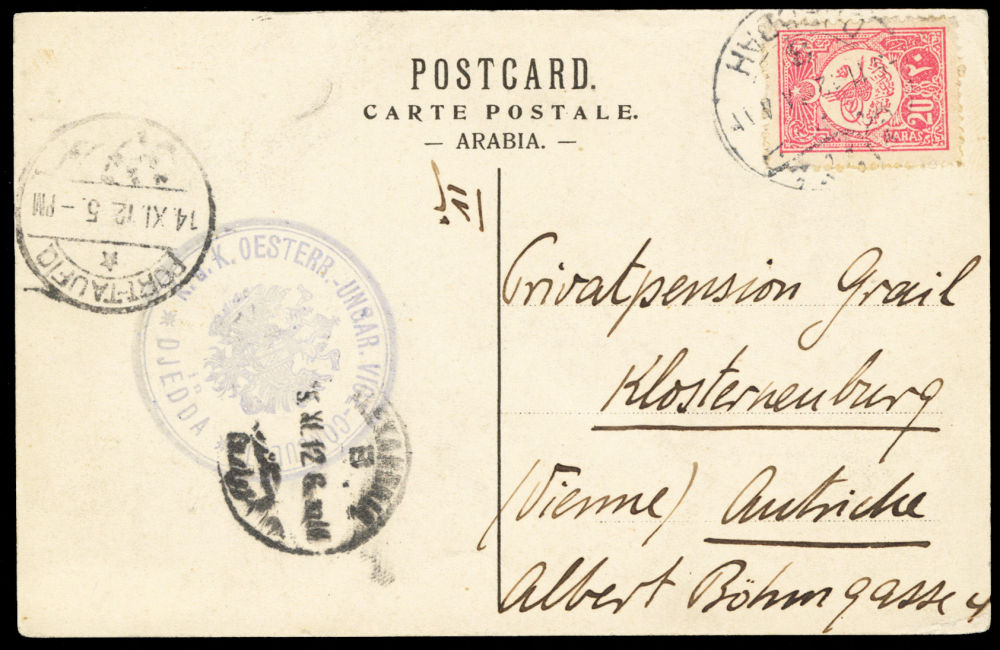 POSTCARD.
CARTE POSTALE.
— ARABIA. —
20
٢٠
PARAS
PORT-TAUFIQ
14.XI.12 5.-PM
K. U. K. OESTERR.-UNGAR. VICE-CONSULAT
in
DJEDDA
XI.12 6
Privatpension Grail
Klosterneuburg
(Vienne) Autriche
Albert Böhmgasse 4